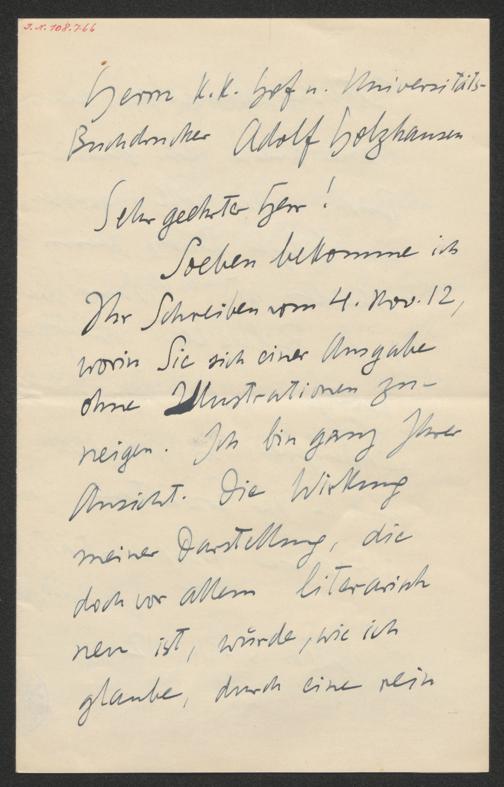 J.N. 108.766
Herrn K.K. Hof u. Universitäts-
Buchdrucker Adolf Holzhausen
Sehr geehrter Herr!
Soeben bekomme ich
Ihr Schreiben vom 4. Nov. 12,
worin Sie sich einer Ausgabe
ohne Illustrationen zu-
neigen. Ich bin ganz Ihrer
Ansicht. Die Wirkung
meiner Darstellung, die
doch vor allem literarisch
neu ist, würde, wie ich
glaube, durch eine rein